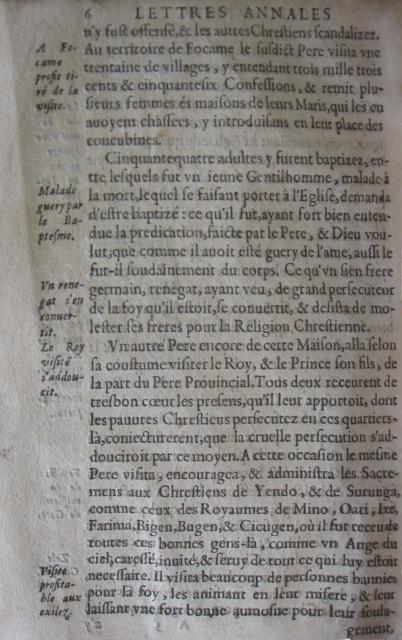 6 LETTRES ANNALES
n'y fust offensé, & les autres Chrestiens scandalizez.
Au territoire de Focame le susdict Pere visita vne
trentaine de villages, y entendant trois mille trois
cents & cinquantesix Confessions, & remit plu-
sieurs femmes és maisons de leurs Maris, qui les en
auoyent chassees, y introduisans en leur place des
concubines.
Cinquantequatre adultes y furent baptizez, en-
tre lesquels fut vn ieune Gentilhomme, malade à
la mort, lequel se faisant porter à l'Eglise, demanda
d'estre baptizé : ce qu'il fut, ayant fort bien enten-
due la predication, faicte par le Pere, & Dieu vou-
lut, que comme il auoit esté guery de l'ame, aussi le
fut-il soudainement du corps. Ce qu'vn sien frere
germain, renegat, ayant veu, de grand persecuteur
de la foy qu'il estoit, se conuertit, & desista de mo-
lester ses freres pour la Religion Chrestienne.
Vn autre Pere encore de cette Maison, alla selon
sa coustume visiter le Roy, & le Prince son fils, de
la part du Pere Prouincial. Tous deux receurent de
tresbon cœur les presens, qu'il leur apportoit, dont
les pauures Chrestiens persecutez en ces quartiers-
là, coniecturerent, que la cruelle persecution s'ad-
douciroit par ce moyen. A cette occasion le mesme
Pere visita, encouragea, & administra les Sacre-
mens aux Chrestiens de Yendo, & de Surunga,
comme ceux des Royaumes de Mino, Oari, Ixe,
Farima, Bigen, Bugen, & Cicugen, où il fut receu de
toutes ces bonnes gens-là, comme vn Ange du
ciel, caressé, inuité, & seruy de tout ce qui luy estoit
necessaire. Il visita beaucoup de personnes bannies
pour la foy, les animant en leur misere, & leur
laissant vne fort bonne aumosne pour leur soula-
gement,
A Fo-
came
profit ti-
ré de la
visite.
Malade
guery par
le Ba-
ptesme.
Vn rene-
gat s'en
conuer-
tit.
Le Roy
visité
s'addou-
cit.
Visite
profita-
ble aux
exilez.